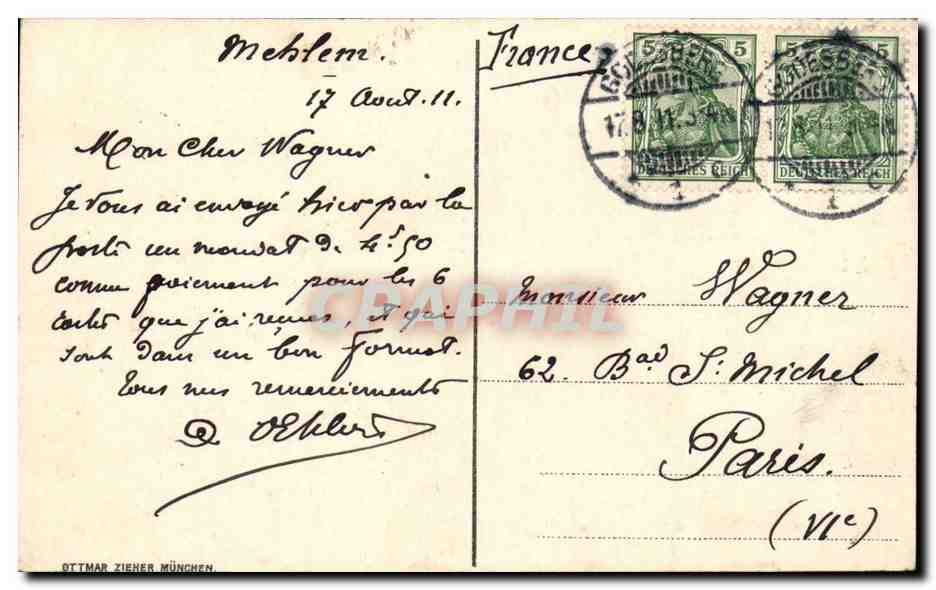 Mehlem.
17 Aout. 11.
Mon cher Wagner
Je vous ai envoyé hier par la
poste un mandat de 4f50
comme paiement pour les 6
cartes que j'ai reçues, et qui
sont dans un bon format.
Tous mes remerciements
France
GODESBERG
17.8.11.
1
GODESBERG
1
5 5
DEUTSCHES REICH
5 5
DEUTSCHES REICH
Monsieur Wagner
62. Bad St. Michel
Paris.
(VIe)
CPAPHIL
OTTMAR ZIEHER MÜNCHEN.